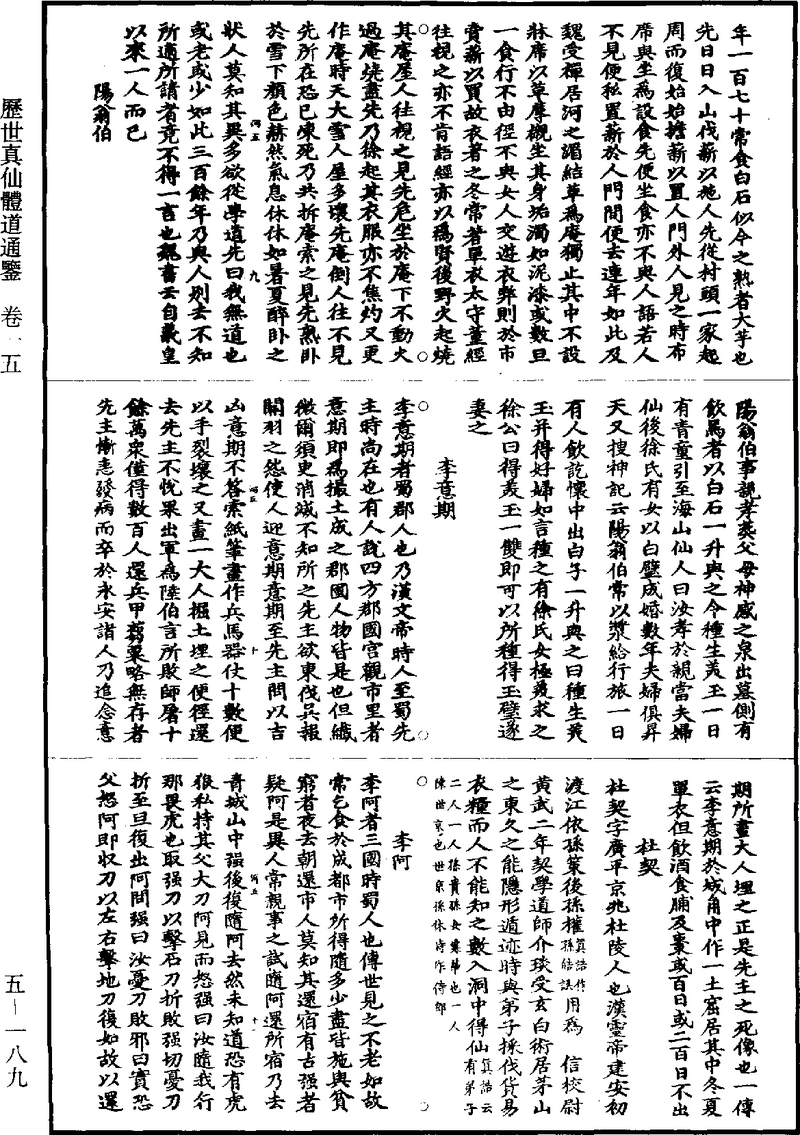 歷世真仙體道通鑒　卷一五
五－一八九
年一百七十常食白石似今之熟者大芋也
先日日入山伐薪以施人先從村頭一家起
周而復始擔薪以置人門外人見之時布
席與坐為設食先便坐食亦不與人語若人
不見便私置薪於人門間便去連年如此及
魏受禪居河之湄結草為庵獨止其中不設
牀席以草摩襯坐其身垢濁如泥漆或數旦
一食行不由徑不與女人交遊衣弊則於市
賣薪以買故衣著之冬常若單衣太守董經
往視之亦不肯語經亦以為賢後野火起燒
其庵屋人往視之見先危坐於庵下不動火
過庵燒盡先乃徐起其衣服亦不焦灼又更
作庵時天大雪人屋多壞先庵倒人往不見
先所在恐已凍死乃共折庵索之見先熟臥
於雪下顏色赫然氣息休休如暑夏醉臥之
狀人莫知其異多欲從學道先曰我無道也
或老或少如此三百餘年乃與人別去不知
所適所請者竟不得一言也魏書云自羲皇
以來一人而已
陽翁伯
陽翁伯事親孝葬父母神感之泉出墓側有
飲馬者以白石一升與之令種生美玉一日
有青童引至海山仙人曰汝孝於親當夫婦
仙後徐氏有女以白璧成婚數年夫婦俱昇
天又搜神記云陽翁伯常以漿給行旅一日
有人飲訖懷中出白子一升與之曰種生美
玉并得好婦如言種之有徐氏女極美求之
徐公曰得美玉一雙即可以所種得玉璧遂
妻之
李意期
李意期者蜀郡人也乃漢文帝時人至蜀先
主時尚在也有人說四方郡國宮觀市里者
意期即為撮土成之郡國人物皆是也但纖
微爾須臾消滅不知所之先主欲東伐吳報
關羽之怨使人迎意期意期至先主問以吉
凶意期不答索紙筆畫作兵馬器仗十數便
以手裂壞之又畫一大人掘土埋之便徑還
去先主不悅果出軍為陸伯言所敗師屠十
餘萬衆僅得數百人還兵甲蒭粟略無存者
先主慚恚發病而卒於永安諸人乃追念意
期所畫大人埋之正是先主之死像也一傳
云李意期於城角中作一土窟居其中冬夏
單衣但飲酒食脯及棗或百日或二百日不出
杜契
杜契字廣平京兆杜陵人也漢靈帝建安初
渡江依孫策後孫權真誥作孫皓誤用為　信校尉
黃武二年契學道師介琰受玄白術居茅山
之東久之能隱形遁迹時與弟子採伐貨易
衣糧而人不能知之數入洞中得仙真誥云有弟子
二人一人孫賁孫女寒華也一人
陳世京也世京孫休時作侍郎
李阿
李阿者三國時蜀人也傳世見之不老如故
常乞食於成都市所得隨多少盡皆施與貧
窮者夜去朝還市人莫知其還宿有古强者
疑阿是異人常親事之試隨阿還所宿乃去
青城山中强後復隨阿去然未知道恐有虎
狼私持其父大刀阿見而怒强曰汝隨我行
那畏虎也取强刀以擊石刀折敗强切憂刀
折至旦復出阿問强曰汝憂刀敗邪曰實恐
父怒阿即収刀以左右擊地刀復如故以還